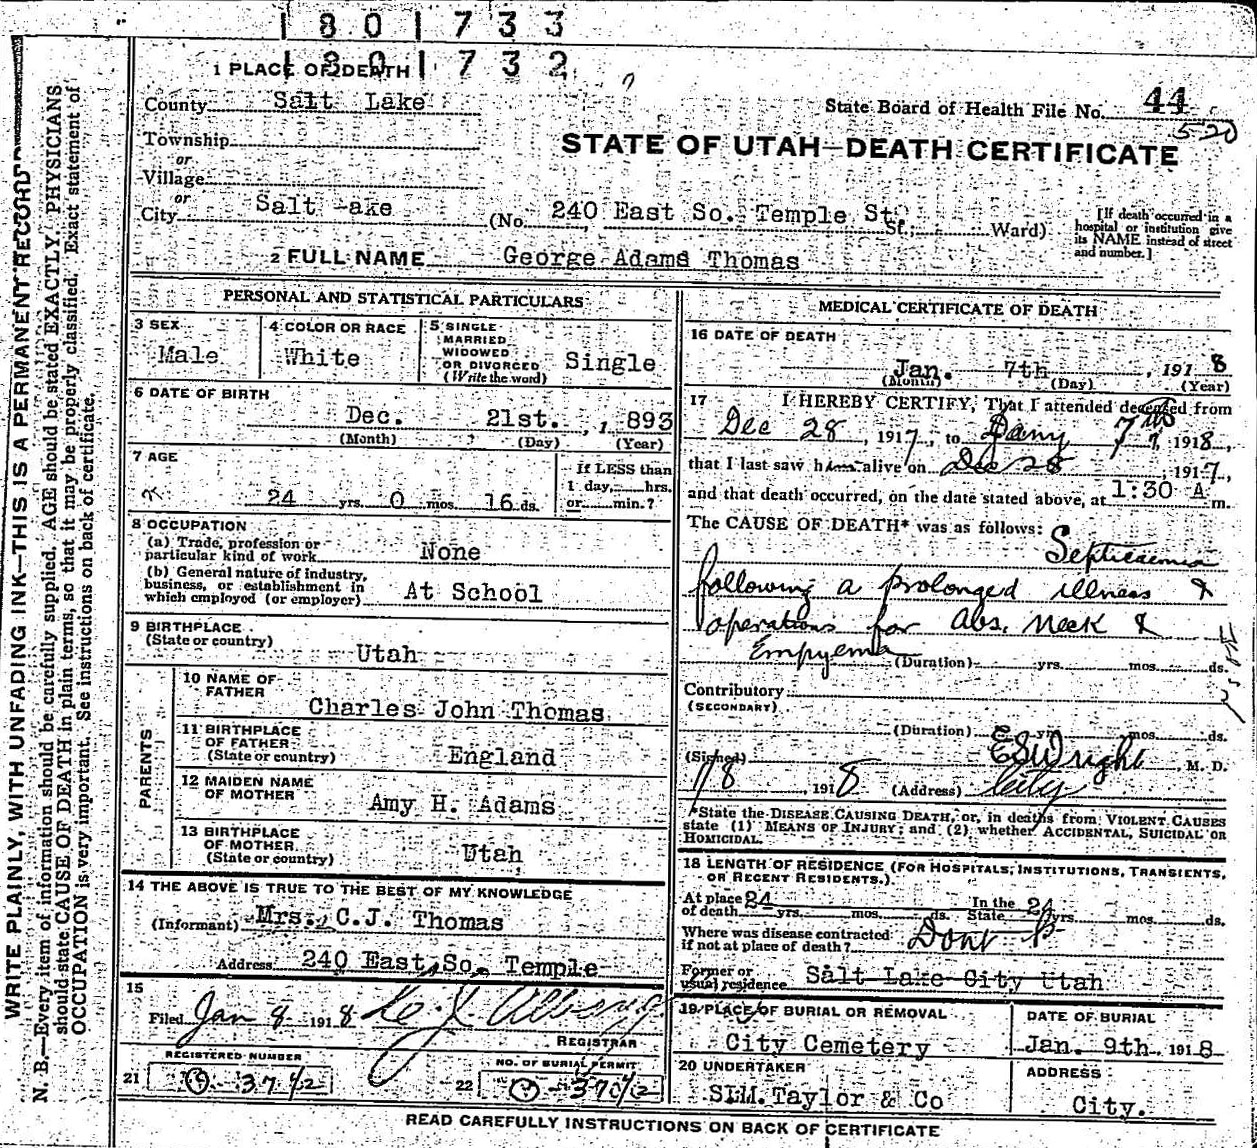 1 8 0 1 7 3 3
1 8 0 1 7 3 2
1 PLACE OF DEATH
County Salt Lake
State Board of Health File No. 44
520
Township
or
Village
or
City Salt -ake
STATE OF UTAH—DEATH CERTIFICATE
(No. 240 East So. Temple St. St.; Ward)
[If death occurred in a
hospital or institution give
its NAME instead of street
and number.]
2 FULL NAME George Adams Thomas
PERSONAL AND STATISTICAL PARTICULARS
3 SEX
Male
4 COLOR OR RACE
White
5 SINGLE
MARRIED
WIDOWED
OR DIVORCED
(Write the word)
Single
6 DATE OF BIRTH
Dec. 21st. , 1 893
(Month) (Day) (Year)
7 AGE
24 yrs. 0 mos. 16 ds.
if LESS than
1 day, hrs.
or min.?
8 OCCUPATION
(a) Trade, profession or
particular kind of work None
(b) General nature of industry,
business, or establishment in
which employed (or employer) At School
9 BIRTHPLACE
(State or country)
Utah
PARENTS
10 NAME OF
FATHER
Charles John Thomas
11 BIRTHPLACE
OF FATHER
(State or country) England
12 MAIDEN NAME
OF MOTHER
Amy H. Adams
13 BIRTHPLACE
OF MOTHER
(State or country) Utah
14 THE ABOVE IS TRUE TO THE BEST OF MY KNOWLEDGE
(Informant) Mrs. C.J. Thomas
Address 240 East So. Temple
15
Filed Jan 8 191 8
REGISTRAR
REGISTERED NUMBER
21
NO. OF BURIAL PERMIT
22
MEDICAL CERTIFICATE OF DEATH
16 DATE OF DEATH
Jan. 7th , 191 8
(Month) (Day) (Year)
17 I HEREBY CERTIFY, That I attended deceased from
Dec 28 , 1917, to Jany 7th , 1918,
that I last saw him alive on Dec 28 , 1917,
and that death occurred, on the date stated above, at 1:30 A m.
The CAUSE OF DEATH* was as follows:
Septicaemia
following a prolonged illness &
operations for Abs. Neck &
Empyema
(Duration) yrs. mos. ds.
Contributory
(SECONDARY)
(Duration) yrs. mos. ds.
(Signed) E S Wright , M. D.
1/8 191 8 (Address) City
*State the DISEASE CAUSING DEATH, or, in deaths from VIOLENT CAUSES
state (1) MEANS OF INJURY; and (2) whether ACCIDENTAL, SUICIDAL OR
HOMICIDAL.
18 LENGTH OF RESIDENCE (FOR HOSPITALS, INSTITUTIONS, TRANSIENTS,
OR RECENT RESIDENTS.)
At place of death 24 yrs. mos. ds. In the State 24 yrs. mos. ds.
Where was disease contracted
if not at place of death? Dont
Former or
usual residence Salt Lake City Utah
19 PLACE OF BURIAL OR REMOVAL
City Cemetery
DATE OF BURIAL
Jan. 9th 191 8
20 UNDERTAKER
S.M. Taylor & Co
ADDRESS
City.
READ CAREFULLY INSTRUCTIONS ON BACK OF CERTIFICATE
WRITE PLAINLY, WITH UNFADING INK—THIS IS A PERMANENT RECORD
N. B.—Every item of information should be carefully supplied. AGE should be stated EXACTLY. PHYSICIANS
should state CAUSE OF DEATH in plain terms, so that it may be properly classified. Exact statement of
OCCUPATION is very important. See instructions on back of certificate.